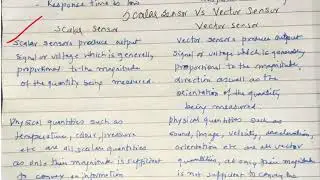 Response time is low
Scalar Sensor Vs Vector Sensor
Scalar Sensor
Scalar Sensors produce output
signal or voltage which is generally
proportional to the magnitude
of the quantity being measured.
Physical quantities such as
temperature, colour, pressure
etc are all scalar quantities
as only their magnitude is sufficient
to convey an information
Vector Sensor
Vector sensors produce output
signal or voltage which is generally
proportional to the magnitude,
direction as well as the
orientation of the quantity
being measured
Physical quantities such as
sound, image, velocity, acceleration,
orientation etc are all vector
quantities, as only their magnitude
is not sufficient to convey the